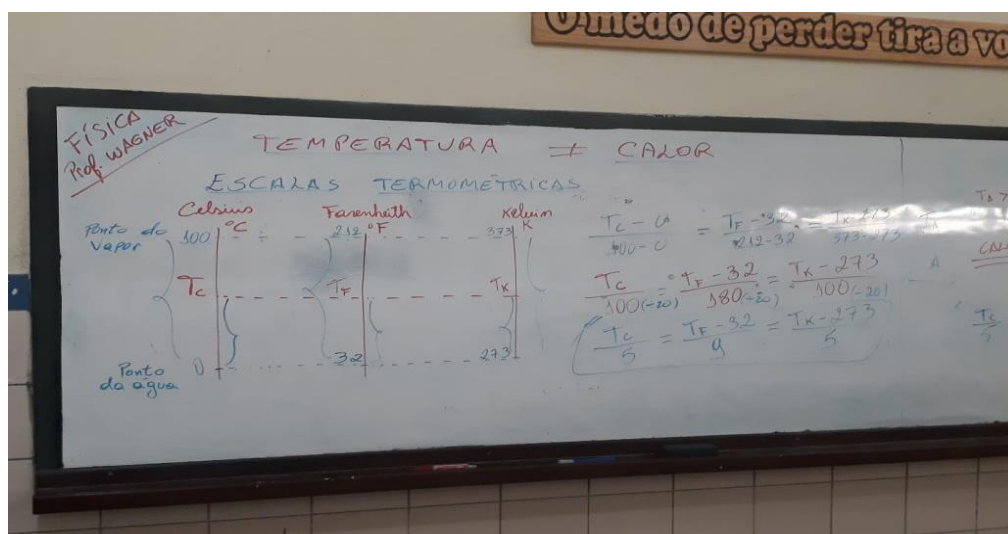 O medo de perder tira a vo
FÍSICA
Prof. WAGNER
TEMPERATURA ≠ CALOR
ESCALAS TERMOMÉTRICAS
Celsius Farenheith Kelvin
Ponto do
Vapor
100 °C 212 °F 373 K
Tc TF TK
Ponto
da água
0 32 273
Tc - 0 / 100 - 0 = TF - 32 / 212 - 32 = TK - 273 / 373 - 273
Tc / 100(÷20) = TF - 32 / 180(÷20) = TK - 273 / 100(÷20)
Tc / 5 = TF - 32 / 9 = TK - 273 / 5
Tc / 5